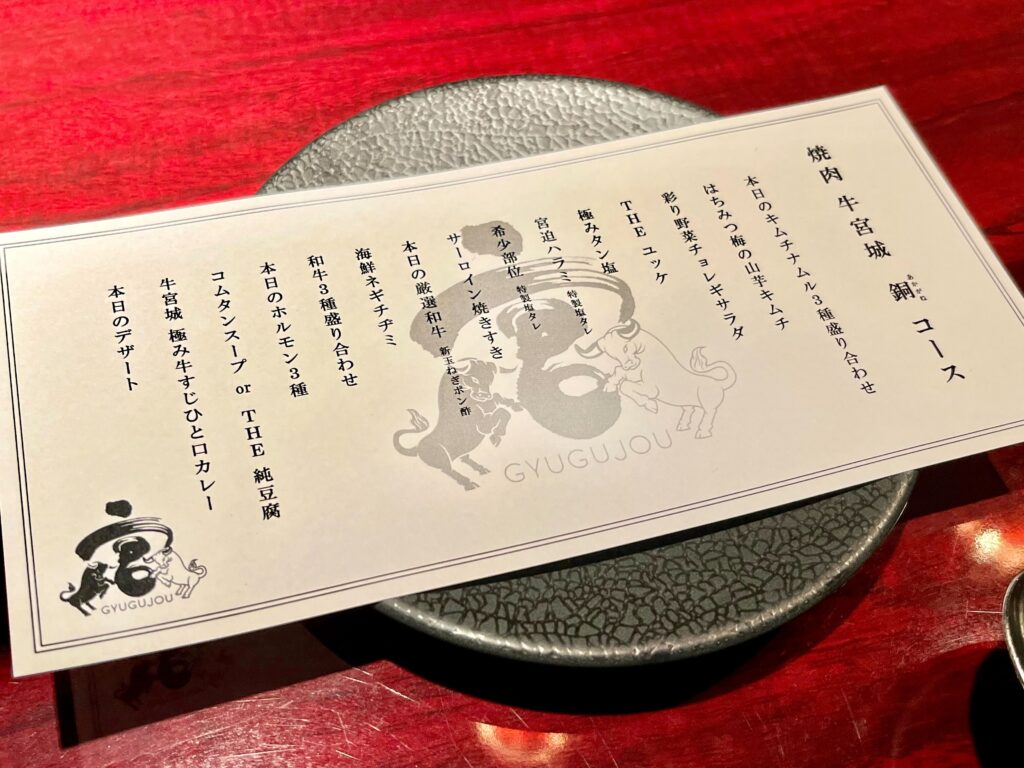 焼肉 牛宮城 銅 コース
あかがね
本日のキムチナムル3種盛り合わせ
はちみつ梅の山芋キムチ
彩り野菜チョレギサラダ
THE ユッケ
極みタン塩
宮迫ハラミ 特製塩タレ
希少部位 特製塩タレ
サーロイン焼きすき
本日の厳選和牛 新玉ねぎポン酢
海鮮ネギチヂミ
和牛3種盛り合わせ
本日のホルモン3種
コムタンスープ or THE 純豆腐
牛宮城 極み牛すじひと口カレー
本日のデザート
宮
GYUGUJOU
宮
GYUGUJOU